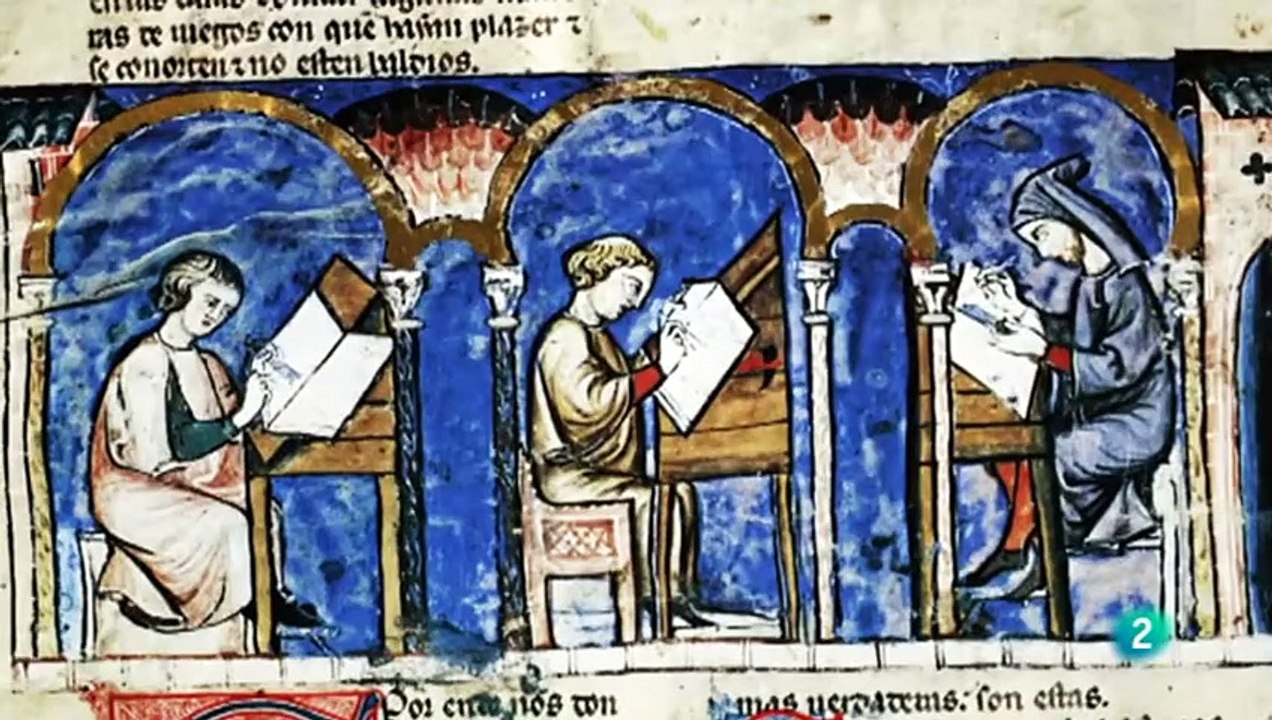 ras de iuegos con que hayan plazer ⁊
se conorten ⁊ no esten baldios.
Por ende nos don
mas uerdaderas: son estas.
2